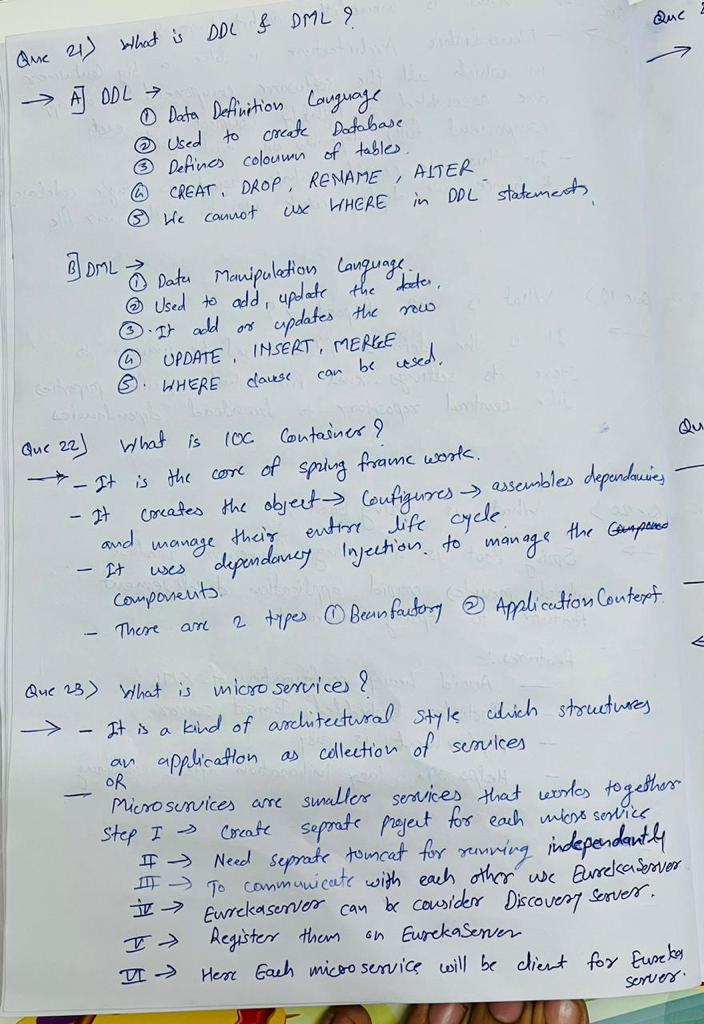 Que 21) What is DDL & DML ?
→ A] DDL →
① Data Definition Language
② Used to create Database
③ Defines coloumn of tables.
④ CREAT, DROP, RENAME, ALTER
⑤ We cannot use WHERE in DDL statements.
B] DML →
① Data Manipulation Language.
② Used to add, update the data.
③ It add or updates the row
④ UPDATE, INSERT, MERGE
⑤ WHERE clause can be used.
Que 22) What is IOC Container ?
→ - It is the core of spring frame work.
- It creates the object → Configures → assembles dependancies
and manage their entire life cycle.
- It uses dependancy Injection. to manage the
Components.
- There are 2 types ① Beanfactory ② Application Context.
Que 23) What is microservices ?
→ - It is a kind of architectural style which structures
an application as collection of services
OR
- Microservices are smaller services that works together
Step I → Create seprate project for each micro service
II → Need seprate tomcat for running independantly
III → To communicate with each other use EurekaServer
IV → Eurekaserver can be consider Discovery Server.
V → Register them on EurekaServer
VI → Here Each microservice will be client for Eureka
server.
Que 2
→
Qu